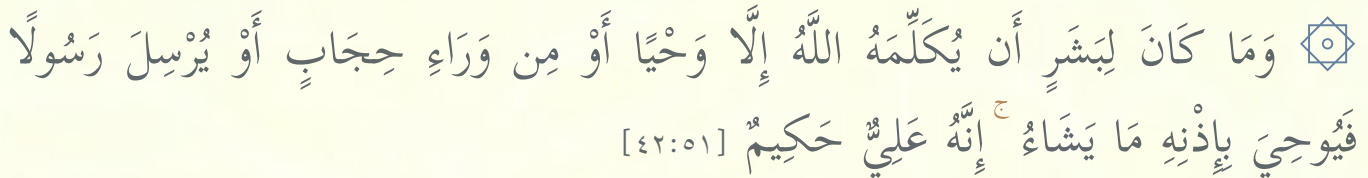 ۞ وَمَا كَانَ لِبَشَرٍ أَن يُكَلِّمَهُ اللَّهُ إِلَّا وَحْيًا أَوْ مِن وَرَاءِ حِجَابٍ أَوْ يُرْسِلَ رَسُولًا
فَيُوحِيَ بِإِذْنِهِ مَا يَشَاءُ ۚ إِنَّهُ عَلِيٌّ حَكِيمٌ [٤٢:٥١]